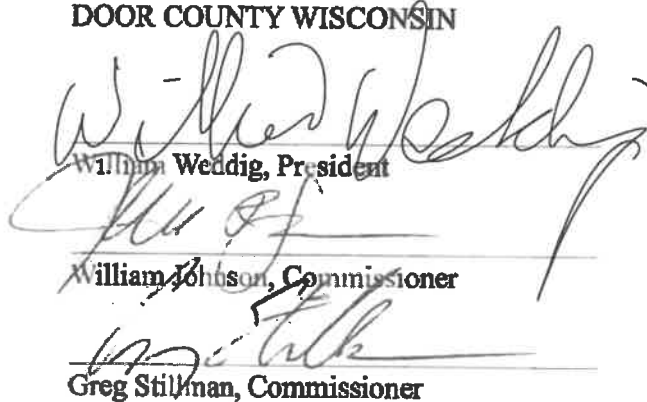 DOOR COUNTY WISCONSIN
William Weddig
William Weddig, President
William Johnson, Commissioner
Greg Stillman, Commissioner